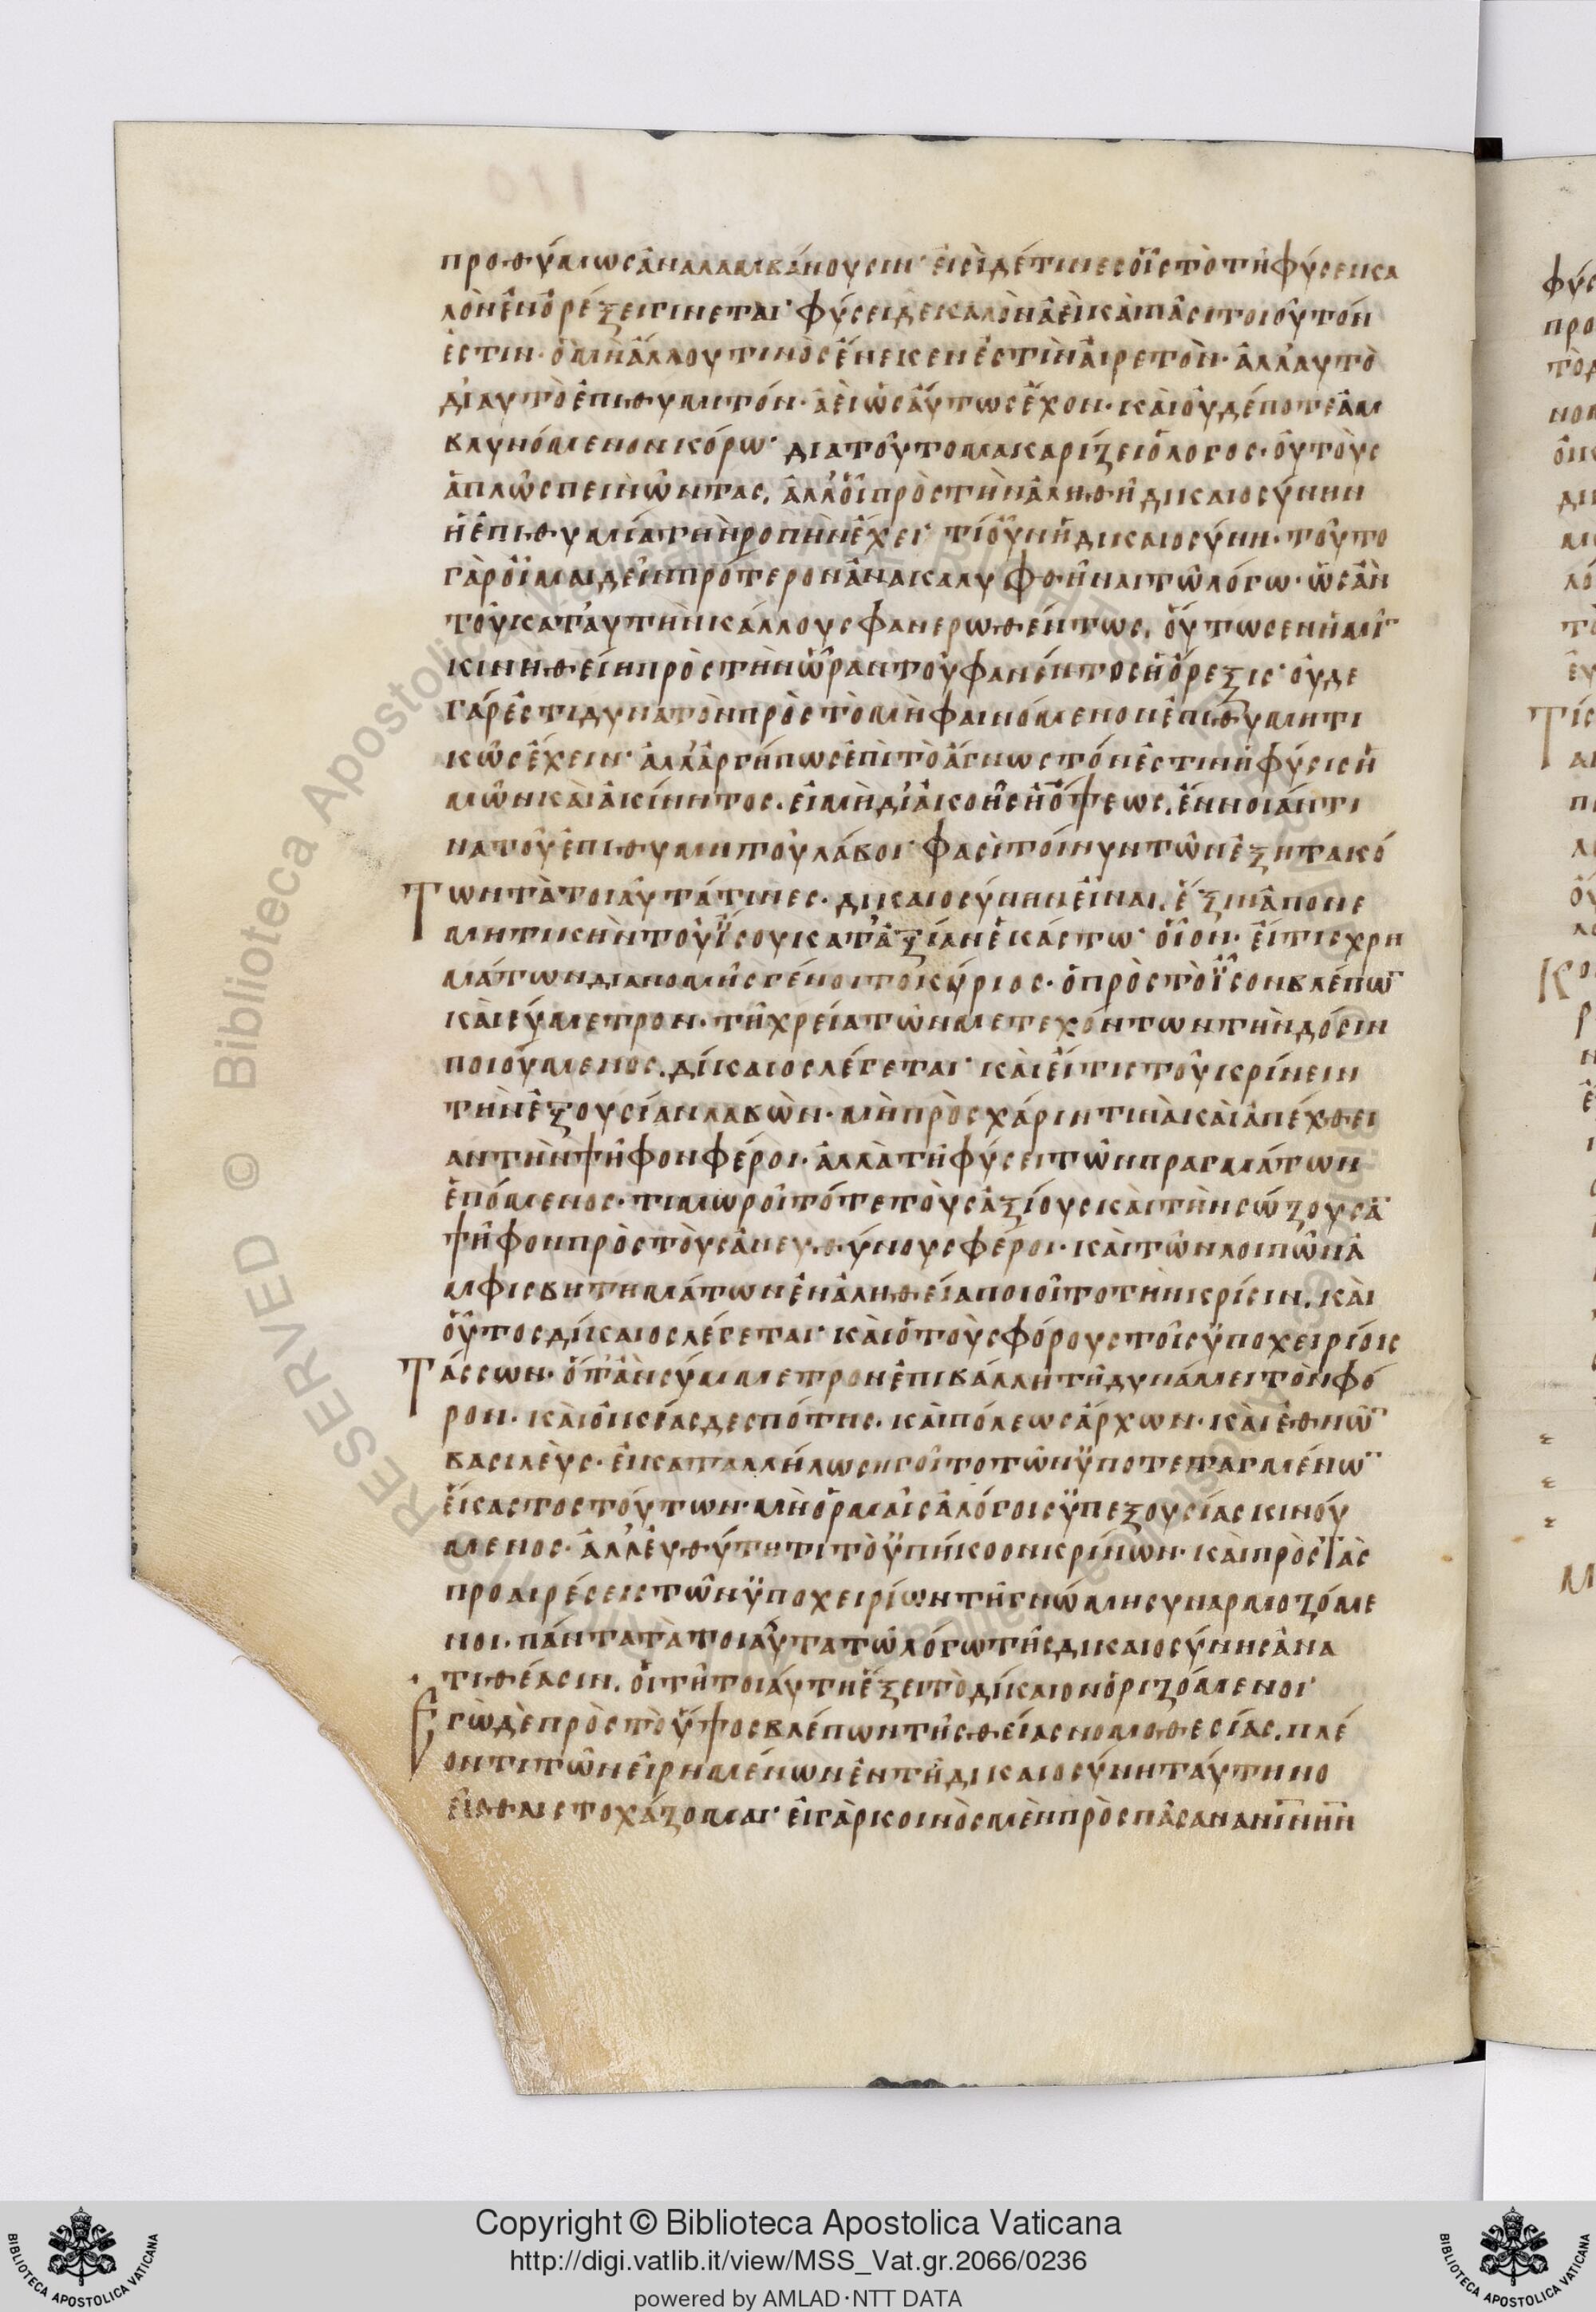 προθύμως ἀναλαμβάνουσιν· εἰσὶ δέ τινες οἷς τὸ τῇ φύσει κα
λὸν ἐν ὀρέξει γίνεται· φύσει δὲ καλὸν ἀεὶ καὶ πᾶσι τοιοῦτόν
ἐστιν· ὃ μὴ ἄλλου τινὸς ἕνεκεν ἐστὶν αἱρετὸν· ἀλλ' αυτὸ
δι' αυτὸ ἐπιθυμητόν· ἀεὶ ὡσαύτως ἔχον· καὶ οὐδέποτε ἀμ
βλυνόμενον κόρω· διατοῦτο μακαρίζει ὁ λόγος· οὐ τοὺς
ἁπλῶς πεινῶντας, ἀλλ' οἳ πρὸς τὴν ἀληθῆ δικαιοσύνην
ἡ ἐπιθυμία τὴν ροπὴν ἔχει· τί οὖν ἡ δικαιοσύνη· τοῦτο
γὰρ οἶμαι δεῖν πρότερον ἀνακαλυφθῆναι τῶ λόγω· ὡς ἂν
τοῦ κατ' αυτὴν κάλλους φανερωθέντως, οὕτως εν ἡμῖ
κινηθείη πρὸς τὴν ὥραν τοῦ φανέντος ἡ ὄρεξις· οὐδε
γάρ ἐστι δυνατὸν πρὸς τὸ μὴ φαινόμενον ἐπιθυμητι
κῶς ἔχειν· ἀλλ' ἀργή πως ἐπὶ τὸ ἄγνωστόν ἐστιν ἡ φύσις ἡ
μῶν καὶ ἀκίνητος. εἰ μὴ δι' ἀκοῆς ἢ ὄψεως, ἔννοιάν τι
να τοῦ ἐπιθυμητοῦ λάβοι· φασὶ τοίνυν τῶν ἐξητακό
Των τὰ τοιαῦτά τινες· δικαιοσύνην εἶναι, ἕξιν ἀπονε
μητικὴν τοῦ ἴσου κατ' ἀξίαν ἑκάστω· οἷον· εἴ τις χρη
μάτων διανομῆς γένοιτο κύριος· ὁ πρὸς τὸ ἴσον βλέπω
καὶ εύμετρον· τῇ χρεία τῶν μετεχόντων τὴν δόσιν
ποιούμενος, δίκαιος λέγεται· καὶ εἴ τις τοῦ κρίνειν
τὴν ἐξουσίαν λαβὼν· μὴ πρὸς χάριν τινὰ καὶ ἀπέχθει
αν τὴν ψῆφον φέροι· ἀλλὰ τῇ φύσει τῶν πραγμάτων
ἑπόμενος· τιμωροῖτό τε τοὺς ἀξίους καὶ τὴν σώζουσα
ψῆφον πρὸς τοὺς ἀνευθύνους φέροι· καὶ τῶν λοιπῶν ἀ
μφισβητημάτων ἐν ἀληθεία ποιοῖτο τὴν κρίσιν, καὶ
οὗτος δίκαιος λέγεται· καὶ ὁ τοὺς φόρους τοῖς ὑποχειρίοις
Τάσσων· ὅτ' ἂν σύμμετρον ἐπιβάλλη τῇ δυνάμει τὸν φό
ρον· καὶ οἰκίας δεσπότης, καὶ πόλεως ἄρχων· καὶ ἐθνῶ
βασιλεὺς· εἰ καταλλήλως ηγοῖτο τῶν ὑποτεταγμένω
ἕκαστος τούτων· μὴ ὁρμαῖς ἀλόγοις ὑπεξουσίας κινού
μενος· ἀλλ' ἐυθύτητι τὸ ὑπήκοον κρίνων· καὶ πρὸς τὰς
προαιρέσεις τῶν ὑποχειρίων τῇ γνώμη συναρμοζόμε
νοι· πάντα τὰ τοιαῦτα τῶ λόγω τῆς δικαιοσύνης ἀνα
τιθέασιν, οἱ τῇ τοιάυτη ἕξει τὸ δίκαιον ὁριζόμενοι·
Εγὼ δὲ πρὸς τὸ ὕψος βλέπων τῆς θείας νομοθεσίας, πλέ
ον τι τῶν εἰρημένων ἐν τῇ δικαιοσύνη τάυτη νο
εῖσθαι στοχάζομαι· εἰ γὰρ κοινὸς μὲν πρὸς πᾶσαν ανίνην
Copyright © Biblioteca Apostolica Vaticana
http://digi.vatlib.it/view/MSS_Vat.gr.2066/0236
powered by AMLAD·NTT DATA
BIBLIOTECA APOSTOLICA VATICANA
BIBLIOTECA APOSTOLICA VATICANA